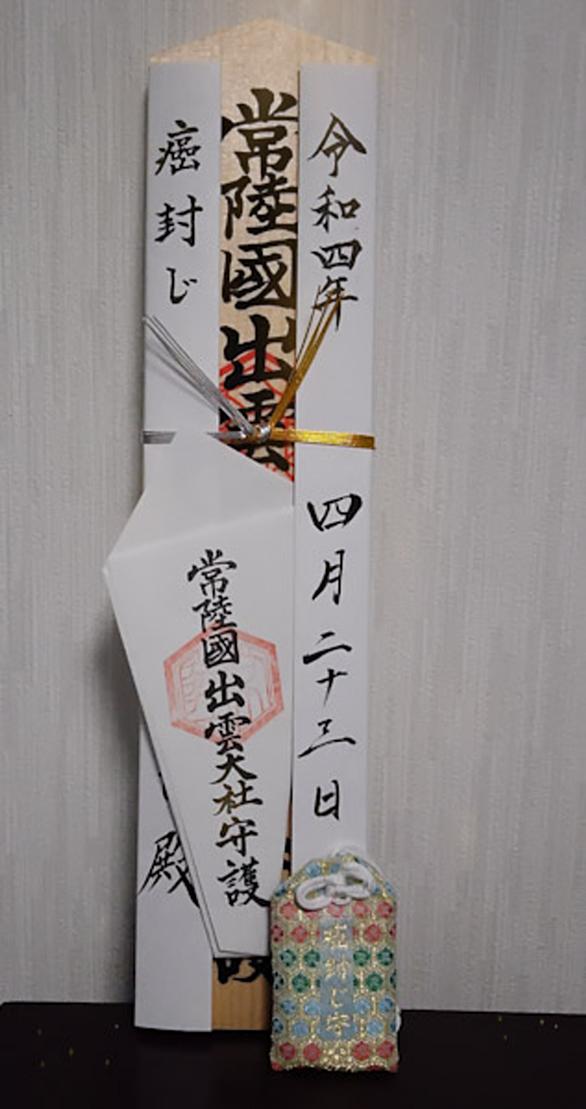 令和四年 四月二十三日
常陸國出雲
癌封じ
殿
常陸國出雲大社守護
癌封じ守